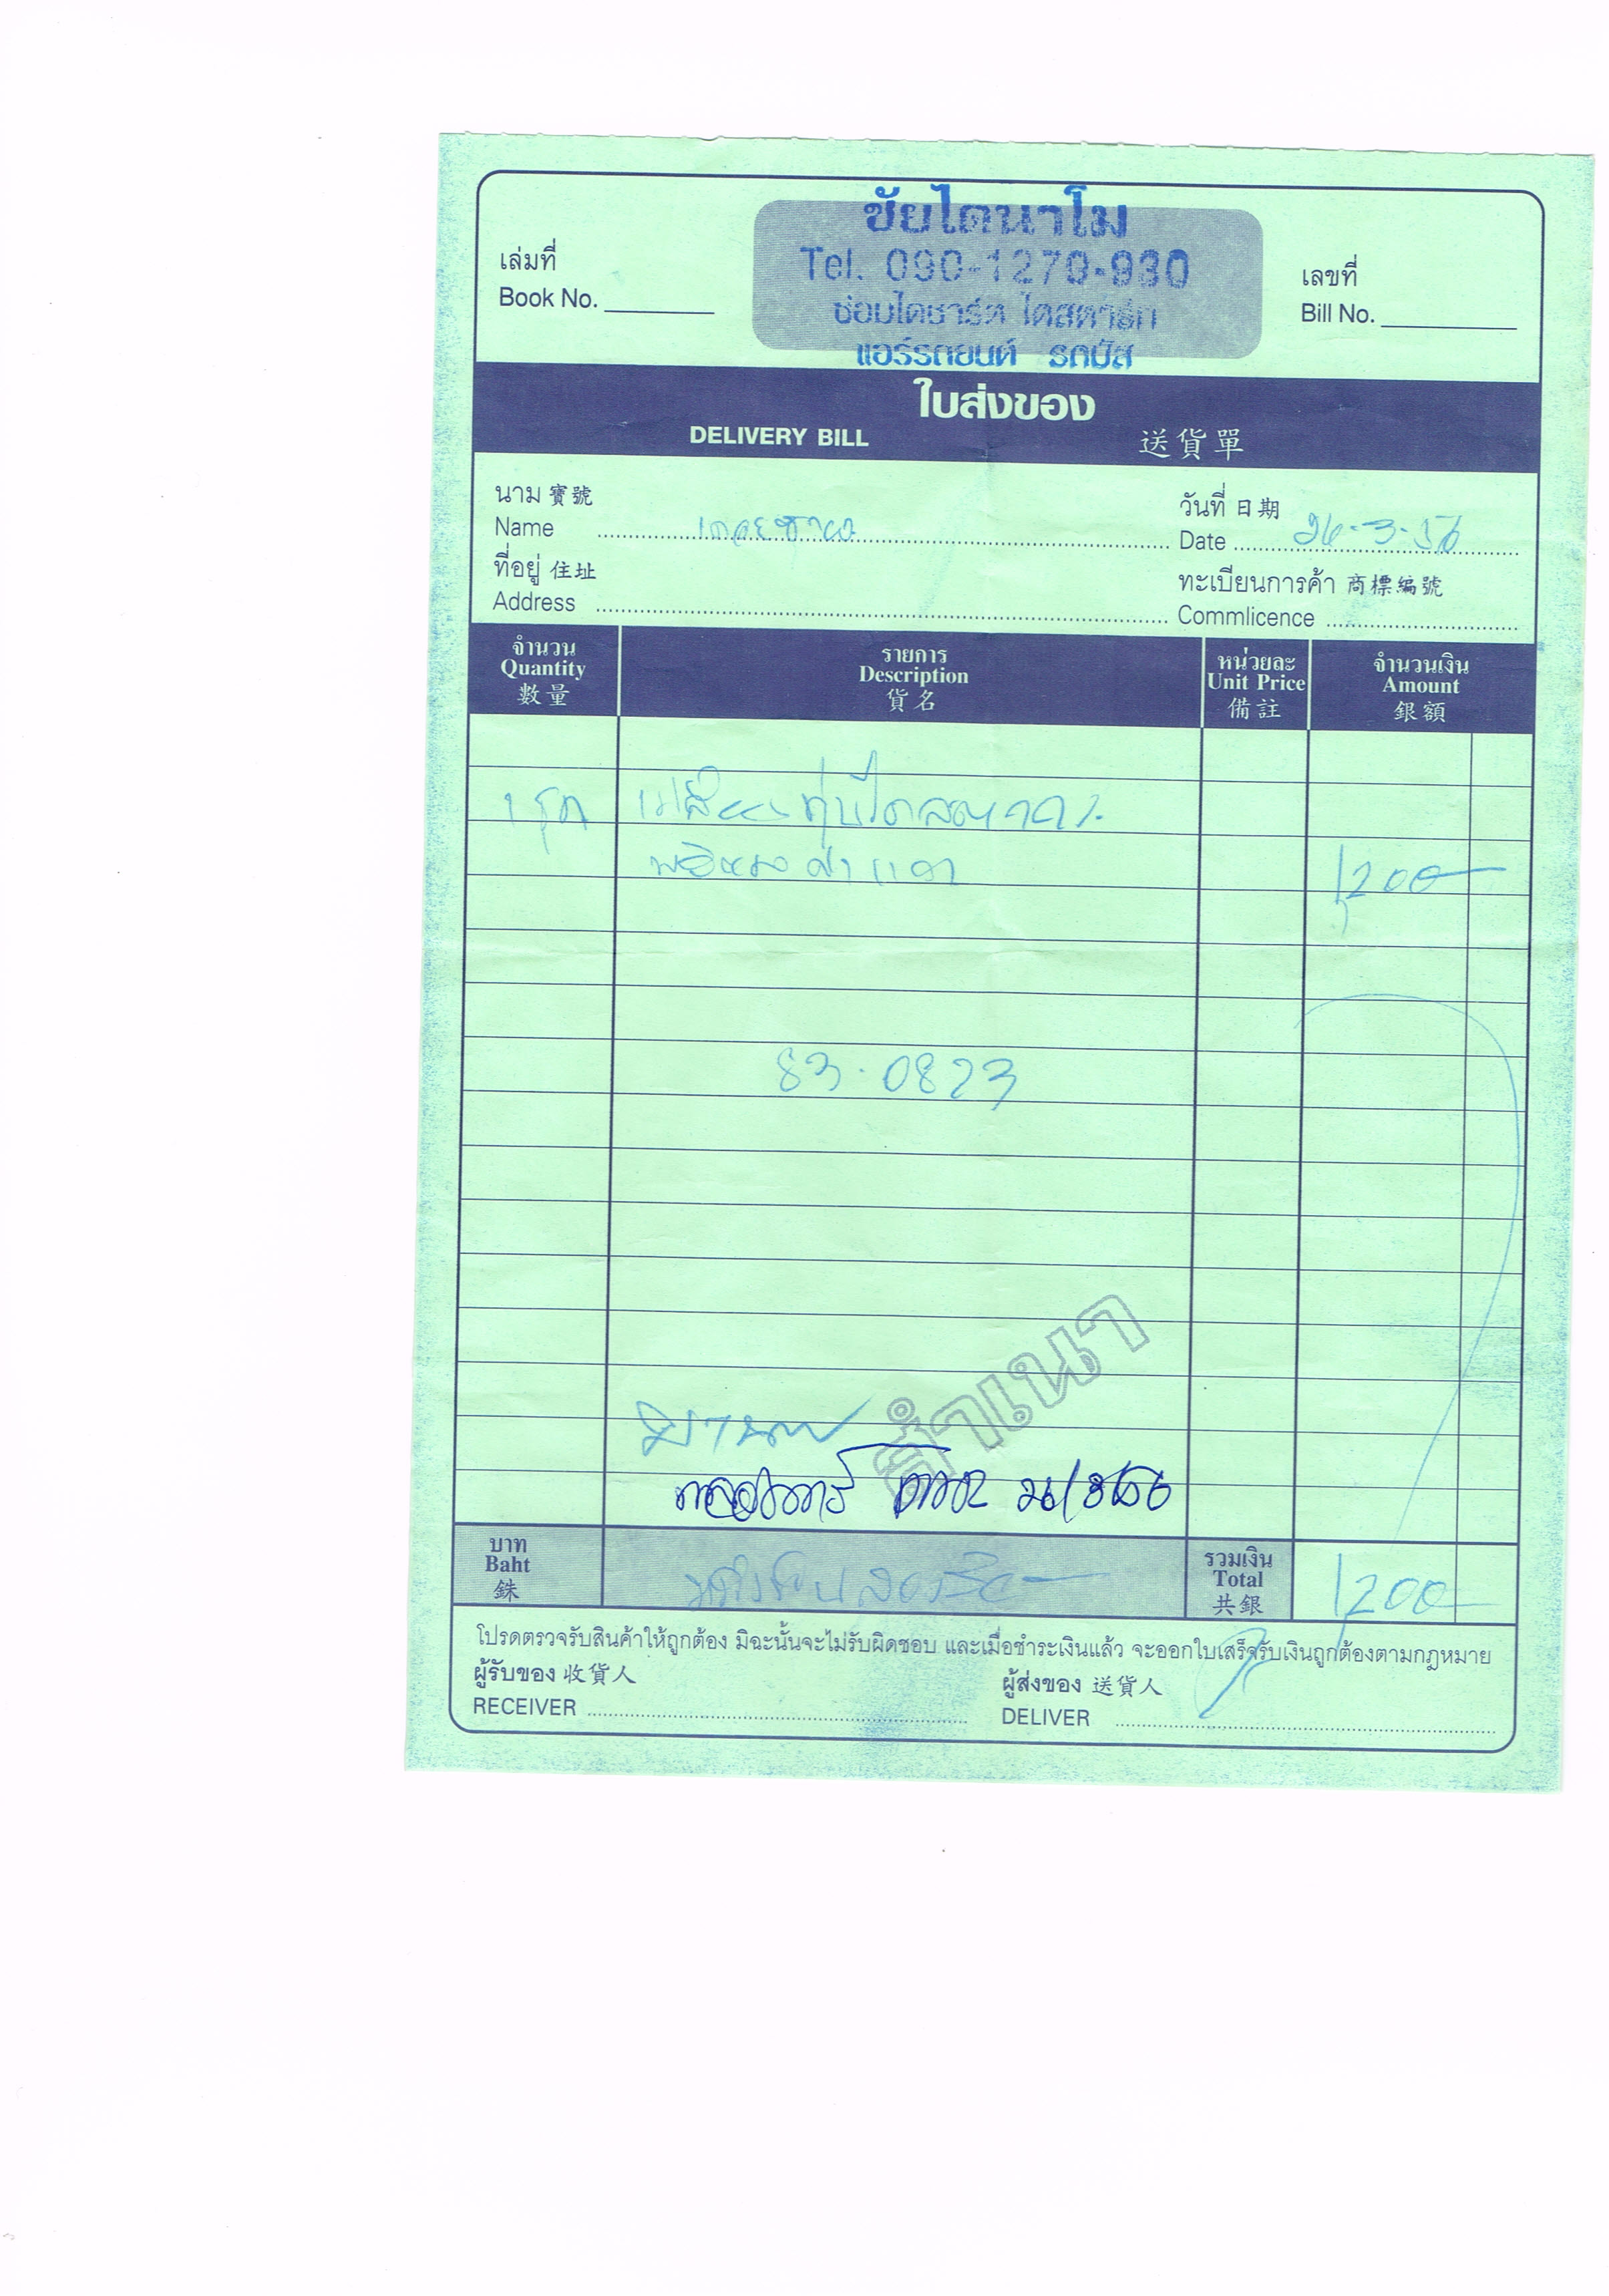 ชัยไดนาโม
Tel. 090-1270-930
ซ่อมไดชาร์ท ไดสตาร์ท
แอร์รถยนต์ รถบัส
เล่มที่
Book No.
เลขที่
Bill No.
ใบส่งของ
DELIVERY BILL 送貨單
นาม 寶號
Name
วันที่ 日期
Date 26-3-56
ที่อยู่ 住址
Address
ทะเบียนการค้า 商標編號
Commlicence
จำนวน
Quantity
數量
รายการ
Description
貨名
หน่วยละ
Unit Price
備註
จำนวนเงิน
Amount
銀額
1 ชุด เปลี่ยนทุ่นไดสตาร์ท
1,200
83-0823
สำเนา
26/3/56
บาท
Baht
銖
รวมเงิน
Total
共銀
1,200
โปรดตรวจรับสินค้าให้ถูกต้อง มิฉะนั้นจะไม่รับผิดชอบ และเมื่อชำระเงินแล้ว จะออกใบเสร็จรับเงินถูกต้องตามกฎหมาย
ผู้รับของ 收貨人
RECEIVER
ผู้ส่งของ 送貨人
DELIVER